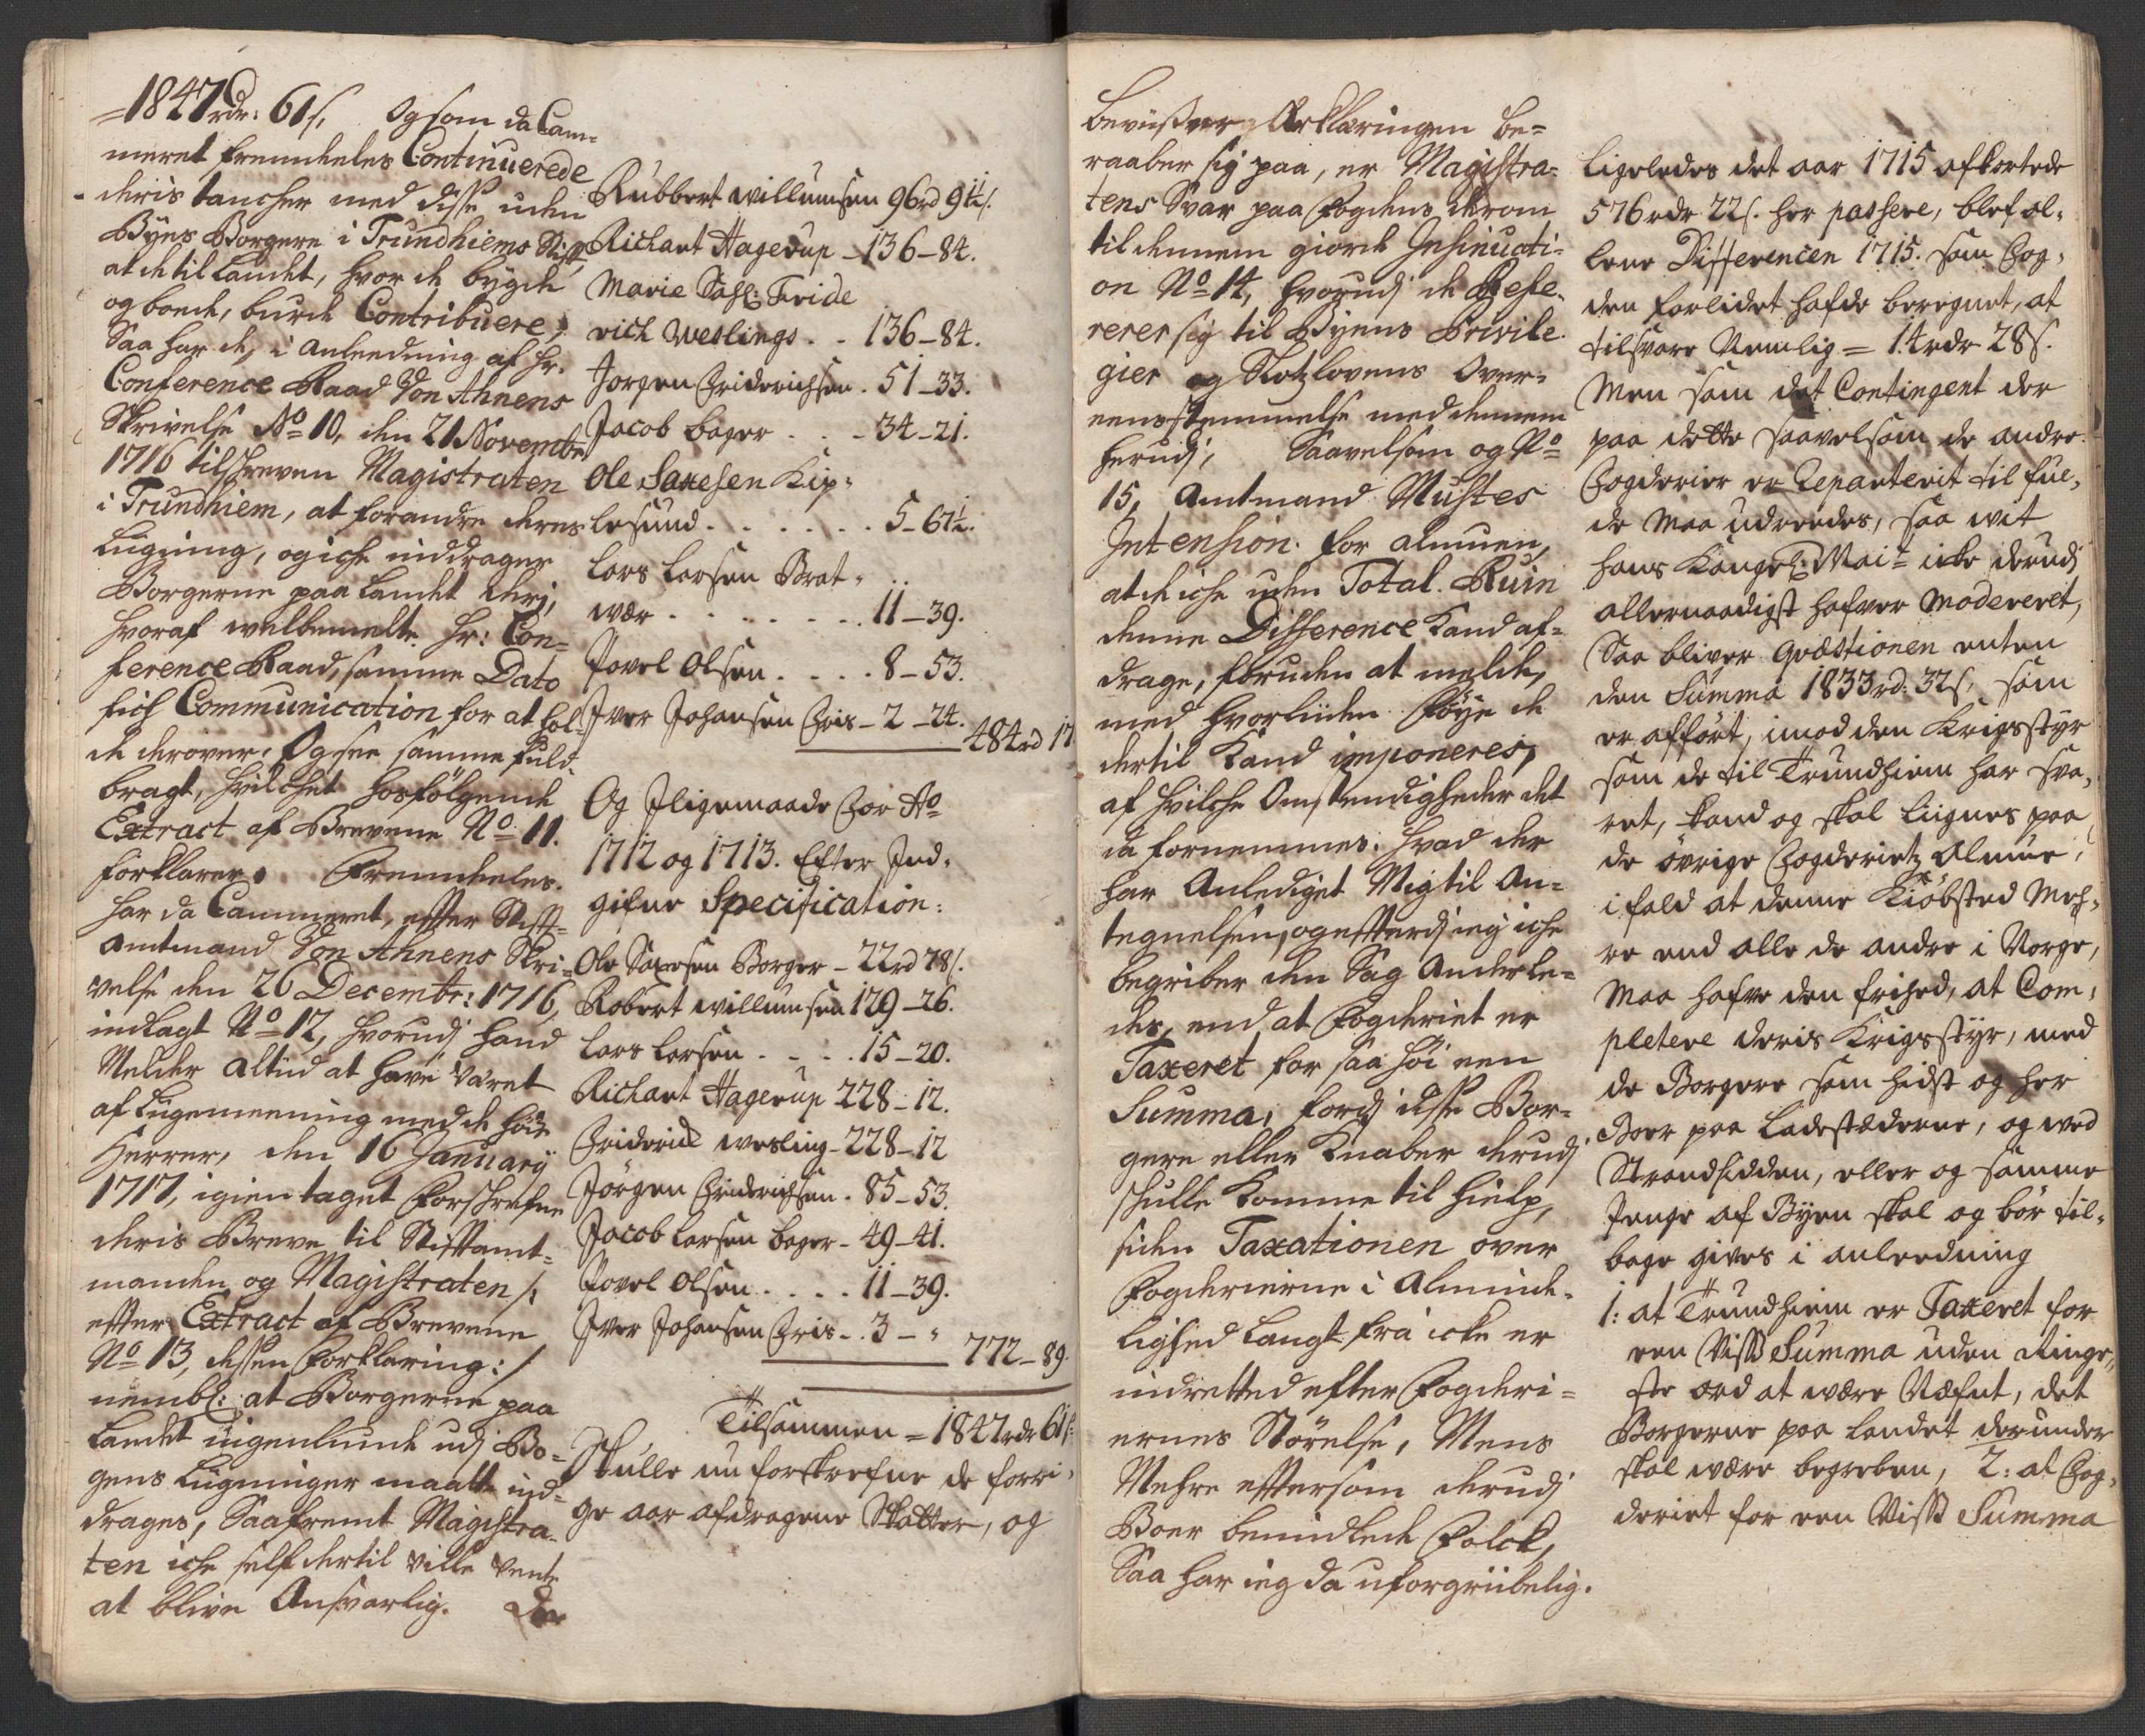 =1847rdr: 61s, Og som da Cam-
meret fremdeles Continuerede
deris tancher med disse uden
Byes Borgere i Trundhiems Stift,
at de til Landet, hvor de bygde
og boede, burde Contribuere,
Saa har de, i anleedning af Hr.
Conference Raad Von Ahnens
Skrivelse No 10, den 21 Novembr
1716 tilschreven Magistraten
i Trundhiem, at forandre deres
Ligning, og iche inddrage
Borgerne paa Landet deri,
hvoraf welbemelte Hr: Con-
ference Raad, samme Dato
fich Communication for at hol-
de derover. Og see samme fuld-
bragt, hvilchet hosfölgende
Extract af Brevene No 11.
forklarer. Fremdeles.
har da Cammeret, efter Stift-
amtmand Von Ahnens Skri-
velse den 26 Decembr: 1716,
indlagt No 12, hvorudj hand
Melder altiid at have været
af liigemeening med de höye
Herrer, den 16 January
1717, igien taget Forschrefne
deris Breve til Stiftamt-
manden og Magistraten /:
efter Extract af Brevene
No 13, dessen Forklaring :/
nembl: at Borgerne paa
Landet ingenlunde udj By-
gens Ligninger maatte ind-
drages, Saafremt Magistra-
ten iche self dertil ville vente
at blive Ansvarlig. Der
Rubbert Willumsen 96rd 91½s.
Richart Hagerup - 136-84.
Marie Sahl: Fride
rich Weslings . . 136-84.
Jorgen Friderichsen . 51-33.
Jacob bager . . . 34-21.
Ole Saxesen Kip-
lesund . . . . . . 5-67½.
Lars Larsen Brat-
wær . . . . . . . 11-39.
Povel Olsen . . . . 8-53.
Iver Johansen Friis - 2-24.
484rd 17
Og Iligemaade For Ao
1712 og 1713. Efter Ind-
gifne Specification:
Ole Saxesen Borger - 22rd 78s.
Robert Willumsen 129-26.
Lars Larsen . . . . 15-20.
Richart Hagerup 228-12.
Friderich Wesling - 228-12
Jörgen Friderichsen . 85-53.
Jacob Larsen bager - 49-41.
Povel Olsen . . . . 11-39.
Iver Johansen Friis - . 3 - "
772-89.
Tilsammen = 1847rdr 61s:
Skulle nu forskrefne de forri-
ge aar afdragene Skatter, og
beviiser Erklæringen be-
raaber sig paa, er Magistra-
tens Svar paa Fogdens derom
til dennem giorde Insinuati-
on No 14, hvorudj de Refe-
rerer sig til Byens Privile-
gier og Slotzlovens Over-
eensstemmelse med dennem
herudj, Saavelsom og No
15, Amtmand Mustes
Intension for almuen,
at de iche uden Total Ruin
denne Difference kand af-
drage, foruden at melde,
med hvorliiden Föye de
dertil kand imponeres,
af hvilche Omstendigheder det
da fornemmes. Hvad der
har Anlediget Mig til An-
tegnelsen, og effterdj ieg iche
begriber den Sag Anderle-
des, end at Fogderiet er
Taxeret for saa höi een
Summa, fordj disse Bor-
gere eller Knaber derudj
schulle komme til hielp,
siden Taxationen over
Fogderierne i Alminde-
lighed langt fra icke er
indretted efter Fogderi-
ernes Störelse, Mens
Mehre effter som derudj
Boer bemidlede Folck,
Saa har ieg da uforgriibelig.
ligeledes det aar 1715 afkortede
576rdr 22s. her passere, blef al-
lene Differencen 1715. som Fog-
den forlidet hafde beregnet, at
tilsvare Nemlig = 14rdr 28s.
Men som det Contingent der
paa dette saavelsom de andre
Fogderier er Reparterit til ful-
de maa udreedes, saa wit
hans Kongel: Mait icke derudj
allernaadigst hafver Modereret,
Saa bliver Qvæstionen enten
den Summa 1833rd: 32s, som
er afført, imod den Krigsstyr
som de til Trundhiem har sva-
ret, kand og skal liignes paa
de övrige Fogderietz Almue,
ifald at denne Kiöbsted Meh-
re end alle de andre i Norge,
Maa hafve den frihed, at Com-
pletere deris Krigsstyr, med
de Borgere som hidst og her
Boer paa Ladestæderne, og wed
Strandsidden, eller og samme
Penge af Byen skal og bör til-
bage gives i anleedning
1: at Trundhiem er Taxeret for
een Viss Summa uden Ringe-
ste ord at være Næfnt, det
Borgerne paa Landet derunder
skal være begreben, 2: at Fog-
deriet for een Viss Summa